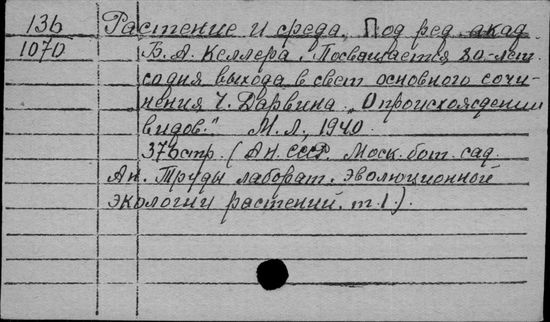 13б Растение и среда. Под ред. акад.
1070 Б. А. Келлера. Посвящается 80-лет.
со дня выхода в свет основного сочи-
нения Ч. Дарвина „О происхождении
видов." М.Л., 1940.
376 стр. (Ан. СССР. Моск. бот. сад.
Ан. Труды лаборат. эволюционной
экологии растений. т. 1.).